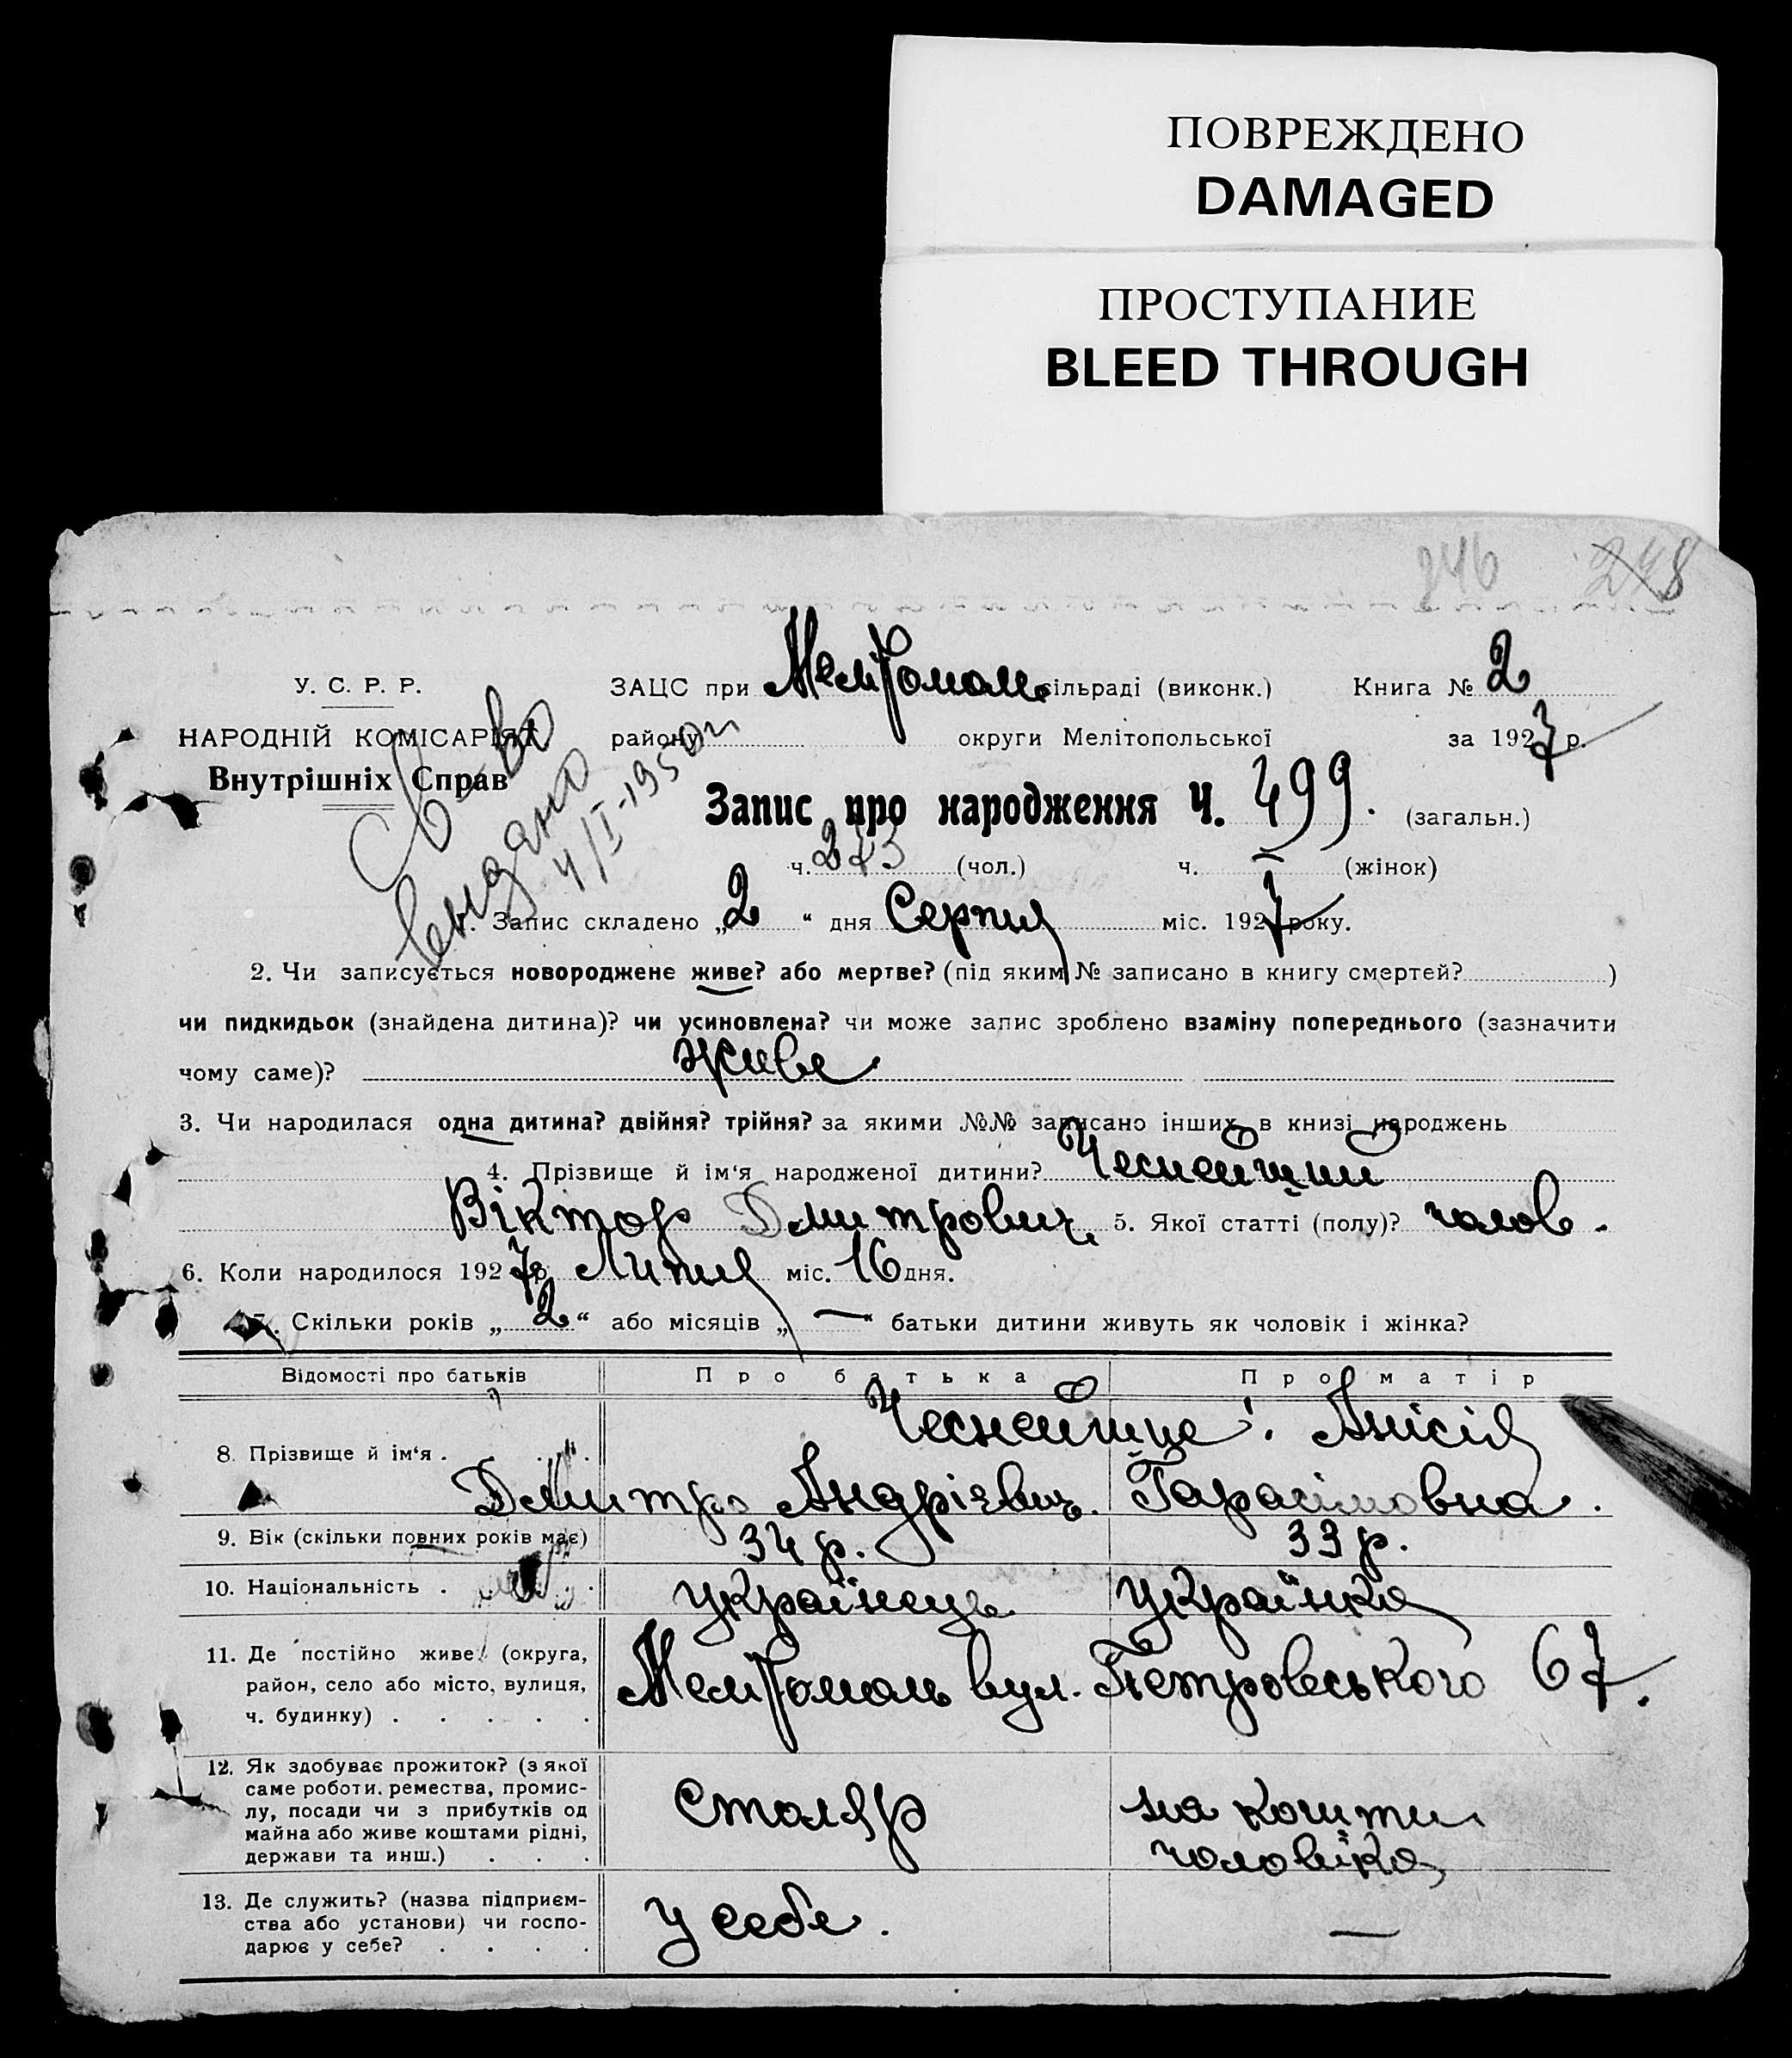 ПОВРЕЖДЕНО
DAMAGED
ПРОСТУПАНИЕ
BLEED THROUGH
246 248
У. С. Р. Р.
НАРОДНІЙ КОМІСАРІЯТ
Внутрішніх Справ
Св-во
выдано
4/I-1950
ЗАЦС при Мелітополь сільраді (виконк.) Книга № 2
району округи Мелітопольської за 1927 р.
Запис про народження Ч. 499. (загальн.)
ч. 273 (чол.) ч. — (жінок)
Запис складено „ 2 “ дня Серпня міс. 1927 року.
2. Чи записується новороджене живе? або мертве? (під яким № записано в книгу смертей? )
чи пидкидьок (знайдена дитина)? чи усиновлена? чи може запис зроблено взаміну попереднього (зазначити
чому саме)? живе
3. Чи народилася одна дитина? двійня? трійня? за якими №№ записано інших в книзі народжень
4. Прізвище й ім‘я народженої дитини? Чеснейший
Віктор Дмитрович 5. Якої статті (полу)? чолов.
6. Коли народилося 1927 р. Липня міс. 16 дня.
7. Скільки років „ 2 “ або місяців „ — “ батьки дитини живуть як чоловік і жінка?
Відомості про батьків Про батька Про матір
8. Прізвище й ім‘я . Чеснейши Анісія
Дмитро Андрієвич. Гарасімовна.
9. Вік (скільки повних років має) 34 р. 33 р.
10. Національність . українець українка
11. Де постійно живе (округа,
район, село або місто, вулиця,
ч. будинку) . . . . . Мелітополь вул. Петровського 67.
12. Як здобуває прожиток? (з якої
саме роботи, ремества, промис-
лу, посади чи з прибутків од
майна або живе коштами рідні,
держави та инш.) . . . Столяр на кошти
чоловіка
13. Де служить? (назва підприєм-
ства або установи) чи госпо-
дарює у себе? . . . . У себе. —